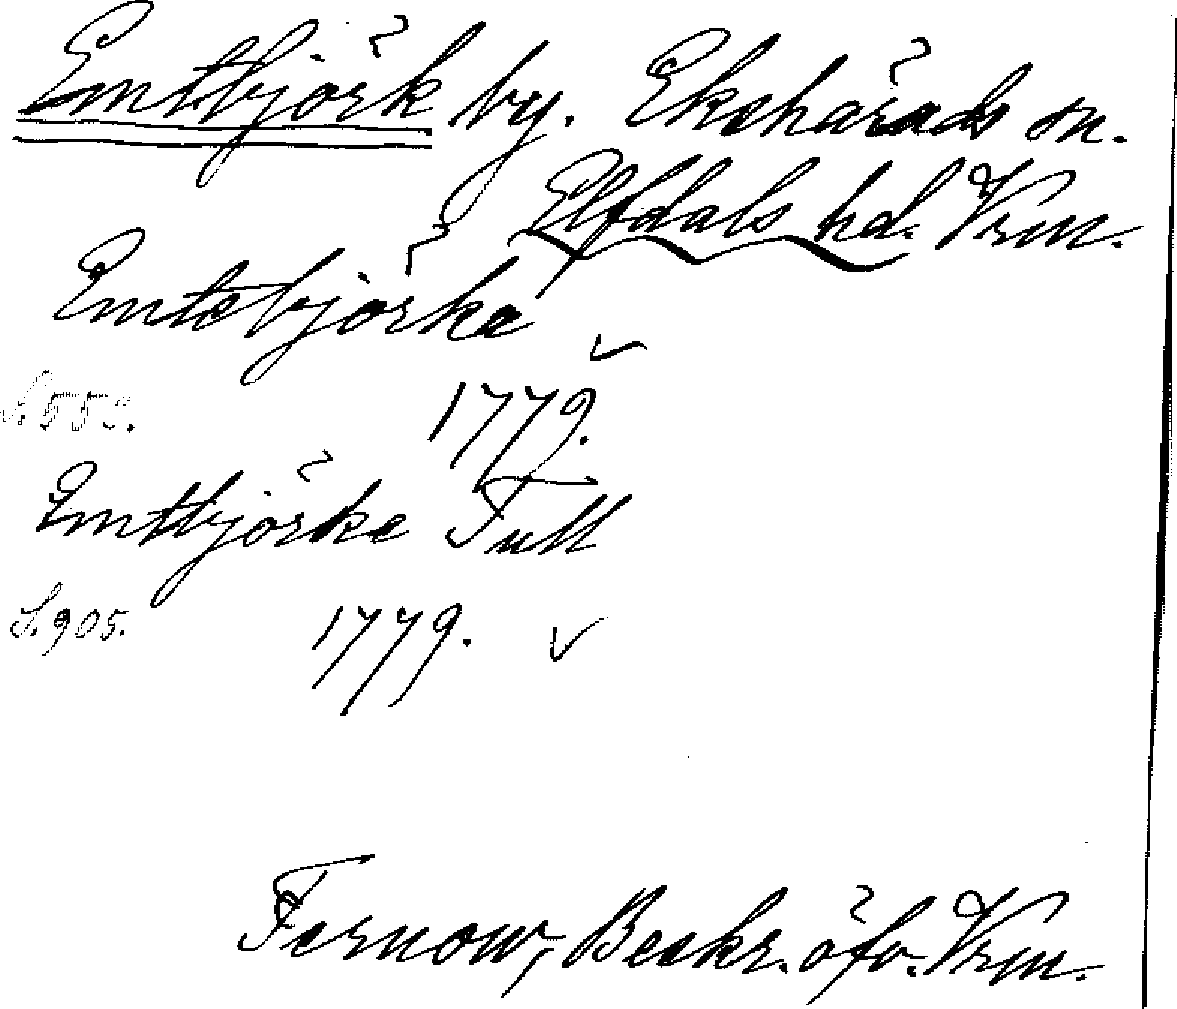 Emtbjörk by. Ekshärads sn.
Elfdals hd. Vrm.
Emtebjörka
S. 550. 1779.
Emtbjörke Tull
S. 905. 1779.
Fernow, Beskr. öfv. Vrm.